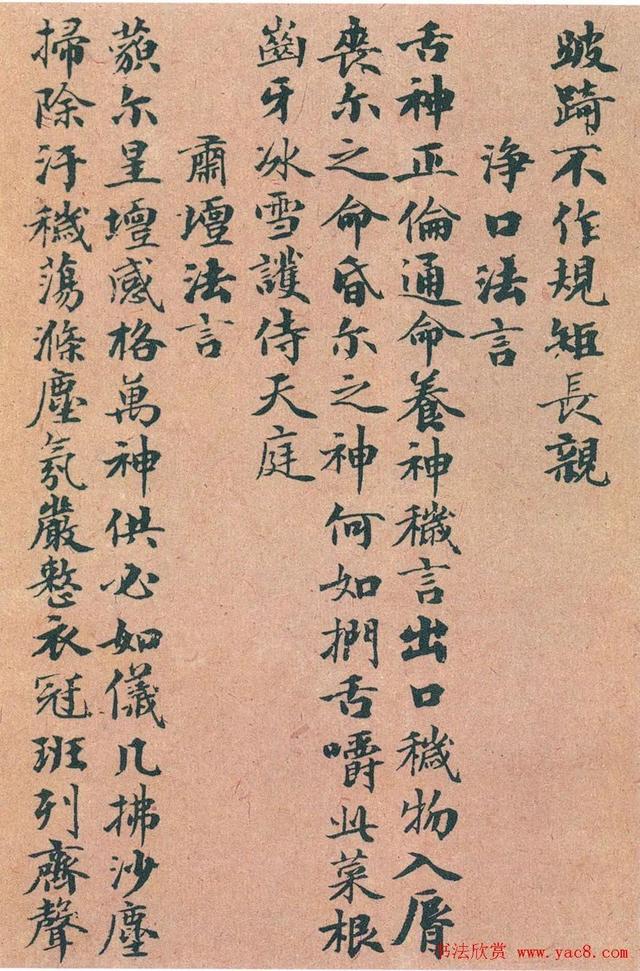 跛踦不作規矩長親
淨口法言
舌神正倫通命養神穢言出口穢物入脣
喪尔之命昏尔之神何如捫舌嚼此菜根
齒牙冰雪護侍天庭
肅壇法言
蘋尔星壇感格萬神供必如儀几拂沙塵
掃除汙穢蕩滌塵氛嚴整衣冠班列齊聲
书法欣赏 www.yac8.com